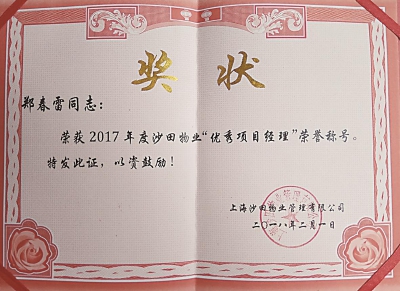 奖状
郑春雷同志：
荣获2017年度沙田物业“优秀项目经理”荣誉称号。
特发此证，以资鼓励！
上海沙田物业管理有限公司
二〇一八年二月一日